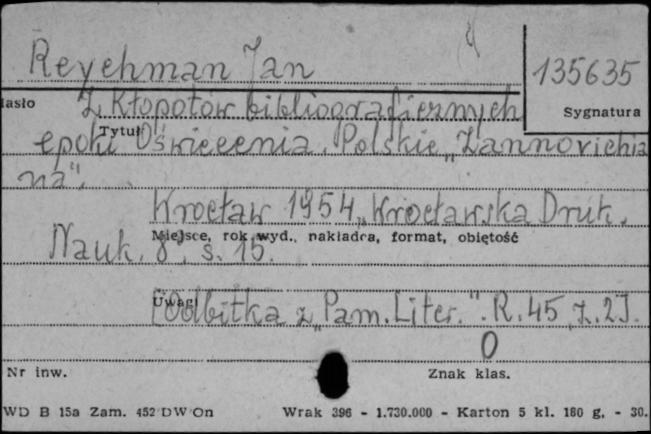 Reychman Jan
135635
Hasło
Sygnatura
Z kłopotów bibliograficznych
Tytuł
epoki Oświecenia. Polskie „Zannovichia
na".
Wrocław 1954, Wrocławska Druk.
Miejsce, rok wyd., nakładca, format, obiętość
Nauk. 8°, s. 15.
Uwagi
[Odbitka z „Pam. Liter.". R. 45, z. 2].
0
Nr inw.
Znak klas.
WD B 15a Zam. 452 DW On Wrak 396 - 1.730.000 - Karton 5 kl. 180 g, - 30.